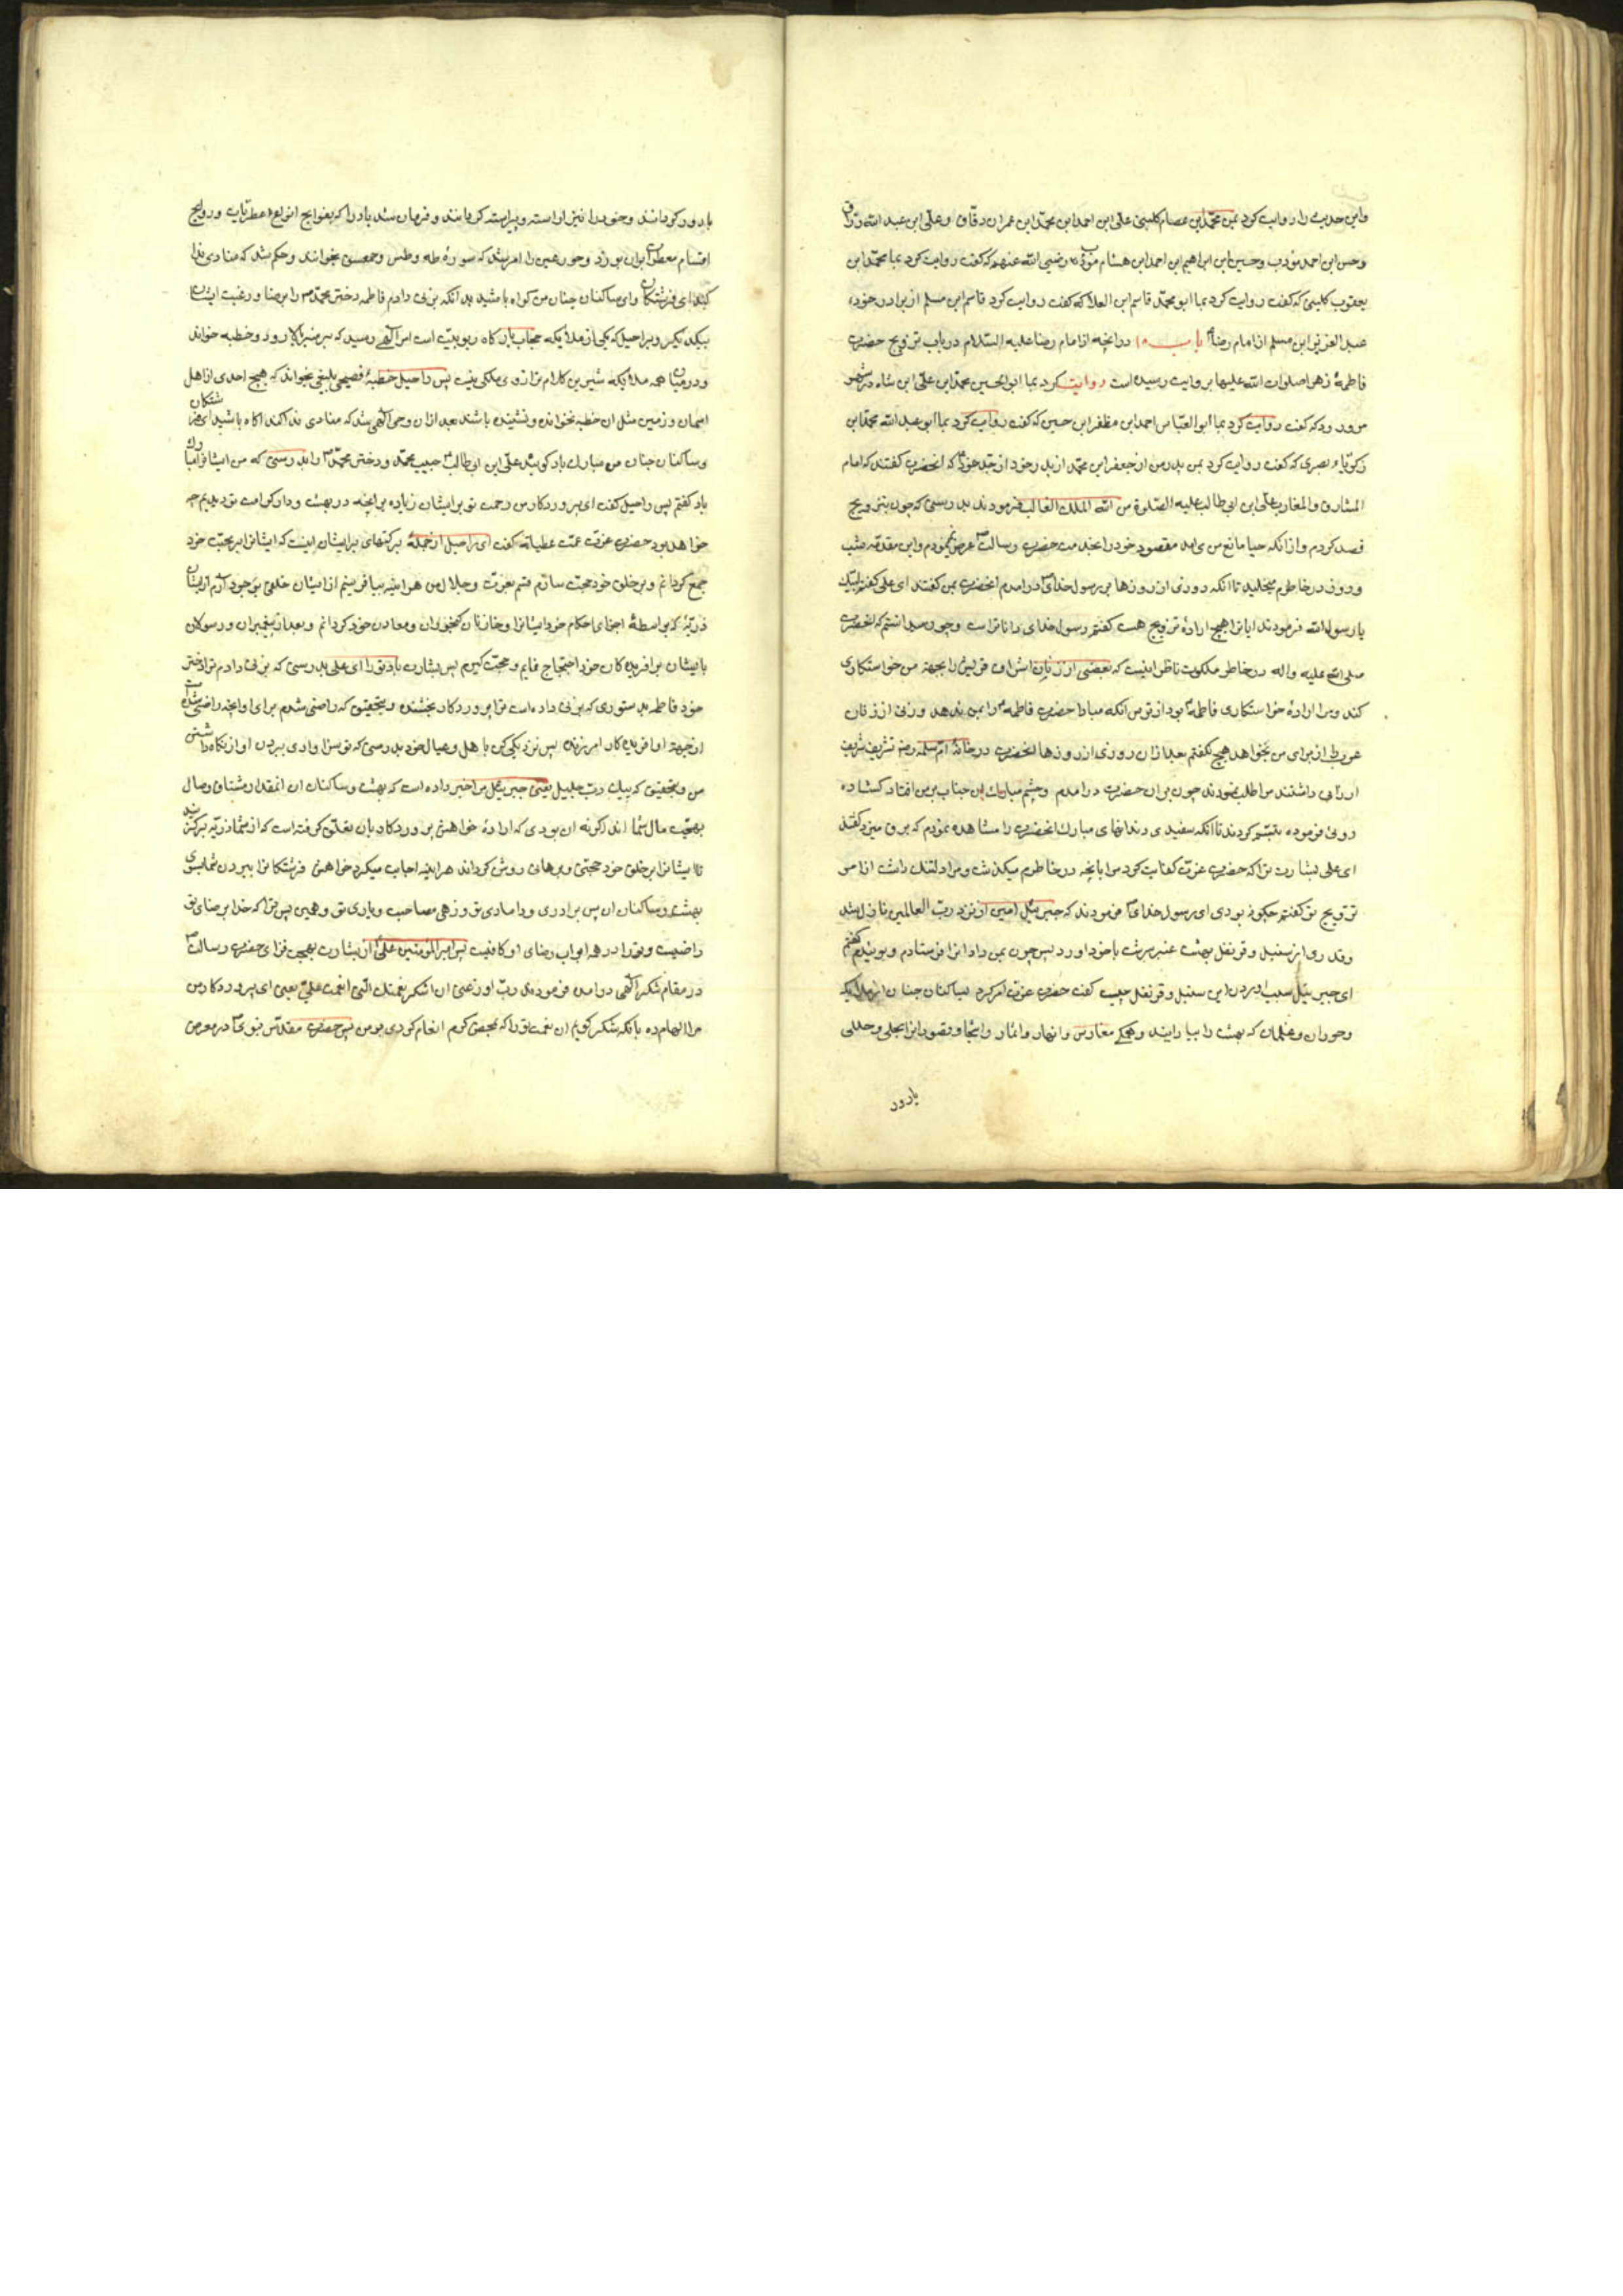 واین حدیث را روایت کرد بمن محمد ابن عصام کلینی علی ابن احمد ابن محمد ابن عمران دقاق و علی ابن عبد الله وراق
وحسن ابن احمد مؤدب وحسین ابن ابراهیم ابن احمد ابن هشام مؤدب رضی الله عنهم که گفت روایت کرد بما محمد ابن
یعقوب کلینی که گفت روایت کرد بما ابو محمد قاسم ابن العلا که گفت روایت کرد قاسم ابن مسلم از برادر خود
عبد العزیز ابن مسلم از امام رضا باب در انچه از امام رضا علیه السلام در باب تزویج حضرت
فاطمهٔ زهرا صلوات الله علیها بروایت رسیده است روایت کرد بما ابو الحسین محمد ابن علی ابن شاه در شهر
مرورود که گفت روایت کرد بما ابو العباس احمد ابن مظفر ابن حسین که گفت روایت کرد بما ابو عبد الله محمد ابن
زکریاء بصری که گفت روایت کرد بمن پدر من از جعفر ابن محمد از پدر خود از جد خود که انحضرت گفتند که امام
المشارق والمغارب علی ابن ابی طالب علیه الصلوة من الله الملک الغالب فرمودند بدرستی که چون بتزویج
قصد کردم و از انکه حیا مانع من می امد مقصود خود را بخدمت حضرت رسالت عرض ننمودم واین مقدمه شب
وروز در خاطرم میخلید تا انکه روزی از روزها بر رسول خدای در امدم انحضرت بمن گفتند ای علی گفتم لبیک
یا رسول الله فرمودند ایا ترا هیچ ارادهٔ تزویج هست گفتم رسول خدای داناتر است وچون میدانستم که انحضرت
صلی الله علیه واله در خاطر ملکوت ناظر اینست که بعضی از زنان اشراف قریش را بجهة من خواستکاری
کند ومرا ارادهٔ خواستکاری فاطمه بود از ترس انکه مبادا حضرت فاطمه را بمن ندهد وزنی از زنان
عرب را از برای من بخواهد هیچ نگفتم بعد از ان روزی از روزها انحضرت در خانهٔ ام سلمه رضه تشریف شریف
ارزانی داشتند مرا طلب نمودند چون بران حضرت در امدم وچشم مبارک ان جناب بر من افتاد گشاده
روئی فرموده تبسم کردند تا انکه سفیدی دندانهای مبارک انحضرت را مشاهده نمودم که برق میزد گفتند
ای علی بشارت ترا که حضرت عزت کفایت کرد مرا بانچه در خاطرم میکذشت ومراد دلتنک داشت از امر
تزویج تو گفتم چکونه بودی ای رسول خدای فرمودند که جبرئیل امین از نزد رب العالمین نازل شد
وقدری از سنبل وقرنفل بهشت عنبر سرشت با خود اورد پس چون بمن داد انرا فرستادم وبوئیدم گفتم
ای جبرئیل سبب اوردن این سنبل وقرنفل چیست گفت حضرت عزت امر کرد ساکنان جنان از ملایکه
وحوران وغلمان که بهشت را بیارایند وهمکی مغارس وانهار واثمار واشجار وقصور انرا بحلی وحللی
بارور
بارور کردانند وحور را نیز اراسته وپیراسته کردانند وفرمان شد باد را که بفوایح انواع عطریات وروایح
اقسام معطرات بران بوزد وحور عین را امر شد که سورهٔ طه وطس وحمعسق بخوانند وحکم شد که منادی ندا
کند ای فرشتکان وای ساکنان جنان من کواه باشید بدانکه بزنی دادم فاطمه دختر محمد را برضا ورغبت ایشان
بیکدیکر وبراحیل که یکی از ملائکه حجاب بارکاه ربوبیت است امر الهی رسید که بر منبر بالا رود وخطبه خواند
ودر میان همه ملائکه شیرین کلام تر از وی ملکی نیست پس راحیل خطبهٔ فصیحی بلیغی بخواند که هیچ احدی از اهل
اسمان وزمین مثل ان خطبه نخوانده ونشنیده باشند بعد ازان وحی الهی شد که منادی ندا کند اکاه باشید ای فرشتکان
وساکنان جنان من مبارک باد کوئید علی ابن ابی طالب حبیب محمد ودختر محمد را بدرستی که من ایشانرا مبارک
باد گفتم پس راحیل گفت ای پروردکار من رحمت تو بر ایشان زیاده بر انچه در بهشت ودار کرامت تو دیدیم چه
خواهد بود حضرت عزت عمت عطیاته گفت ای راحیل از جملهٔ برکتهای بر ایشان اینست که ایشانرا بر محبت خود
جمع کردانم وبر خلق خود حجت سازم قسم بعزت وجلال من هر اینه بیافرینم از ایشان خلقی بوجود آرم از ایشان
ذریهٔ که بواسطهٔ اجرای احکام خود ایشانرا وخازنان گنجوران ومعادن خود کردانم وبعد از پیغمبران ورسولان
بایشان بر افریده کان خود احتجاج قایم وحجت گیرم پس بشارت باد تو را ای علی بدرستی که بزنی دادم ترا دختر
خود فاطمه بدستوری که بزنی داده است ترا پروردکار بخشنده وبتحقیق که راضی شدم برای او انچه راضی شده است
از جهة او افریده کار امرزنده پس نزدیکی کن با هل وعیال خود بدرستی که تو سزاواری ببردن او از نکاه داشتن
من وبتحقیق که پیک رب جلیل یعنی جبرئیل مرا خبر داده است که بهشت وساکنان ان انقدر مشتاق وصال
بهجت مال شما اند اکر نه ان بودی که ارادهٔ خواهش پروردکار بان تعلق گرفته است که از شما ذریه برکزیند
تا ایشانرا بر خلق خود حجتی وبرهانی روش کرداند هر اینه اجابت میکرد خواهش فرشتکانرا ببردن شما بسوی
بهشت وساکنان ان پس برادری ودامادی تو وزهی مصاحب ویاری تو وهمین بس ترا که خدا برضای تو
راضیست وتو را در همه ابواب رضای او کافیست پس امیر المؤمنین علی از بشارت بهجت فزای حضرت رسالت
در مقام شکر الهی در امده فرمودند رب اوزعنی ان اشکر نعمتک التی انعمت علی یعنی ای پروردکار من
مرا الهام ده بانکه شکر کویم ان نعمت تو را که بمحض کرم انعام کردی بر من پس حضرت مقدس نبوی در معرض